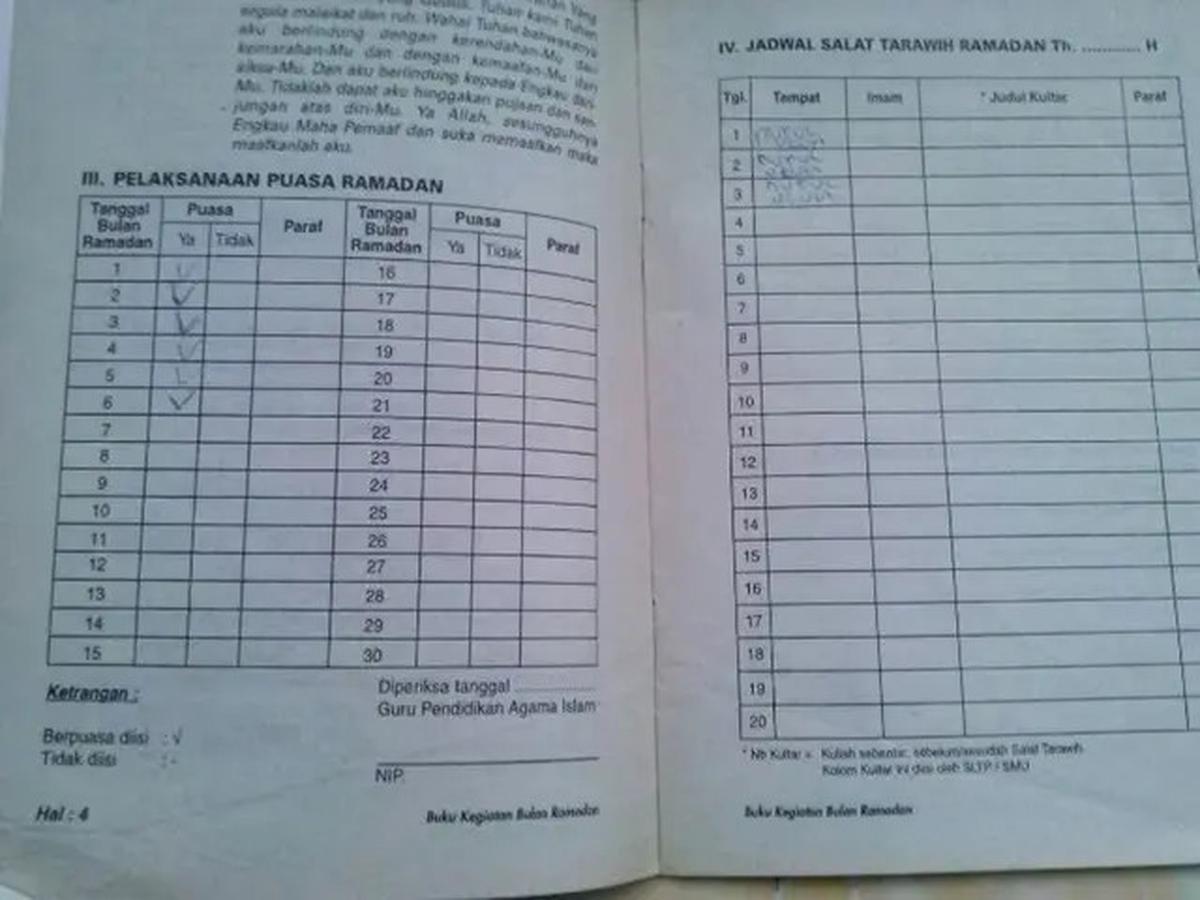 segala malaikat dan ruh. Wahai Tuhan bahwasanya
aku berlindung dengan kerendahan-Mu dari
kemarahan-Mu dan dengan kemaafan-Mu dari
siksa-Mu. Dan aku berlindung kepada Engkau dari-
Mu. Tidaklah dapat aku hinggakan pujaan dan san-
jungan atas diri-Mu. Ya Allah, sesungguhnya
Engkau Maha Pemaaf dan suka memaafkan maka
maafkanlah aku.
III. PELAKSANAAN PUASA RAMADAN
Tanggal Bulan Ramadan Puasa Paraf Tanggal Bulan Ramadan Puasa Paraf
Ya Tidak Ya Tidak
1 16
2 √ 17
3 √ 18
4 √ 19
5 20
6 √ 21
7 22
8 23
9 24
10 25
11 26
12 27
13 28
14 29
15 30
Ketrangan :
Diperiksa tanggal ...............
Guru Pendidikan Agama Islam
Berpuasa diisi : √
Tidak diisi : -
NIP.
Hal : 4
Buku Kegiatan Bulan Ramadan
IV. JADWAL SALAT TARAWIH RAMADAN Th. ............ H
Tgl. Tempat Imam * Judul Kultar Paraf
1
2
3
4
5
6
7
8
9
10
11
12
13
14
15
16
17
18
19
20
* Nb Kultar = Kuliah sebentar, sebelum/sesudah Salat Tarawih
Kolom Kultar ini diisi oleh SLTP / SMU
Buku Kegiatan Bulan Ramadan